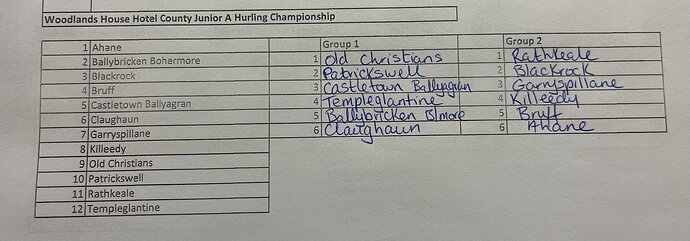 Woodlands House Hotel County Junior A Hurling Championship
Group 1 Group 2
1 Ahane 1 Old Christians 1 Rathkeale
2 Ballybricken Bohermore 2 Patrickswell 2 Blackrock
3 Blackrock 3 Castletown Ballyagran 3 Garryspillane
4 Bruff 4 Templeglantine 4 Killeedy
5 Castletown Ballyagran 5 Ballybricken B/more 5 Bruff
6 Claughaun 6 Claughaun 6 Ahane
7 Garryspillane
8 Killeedy
9 Old Christians
10 Patrickswell
11 Rathkeale
12 Templeglantine